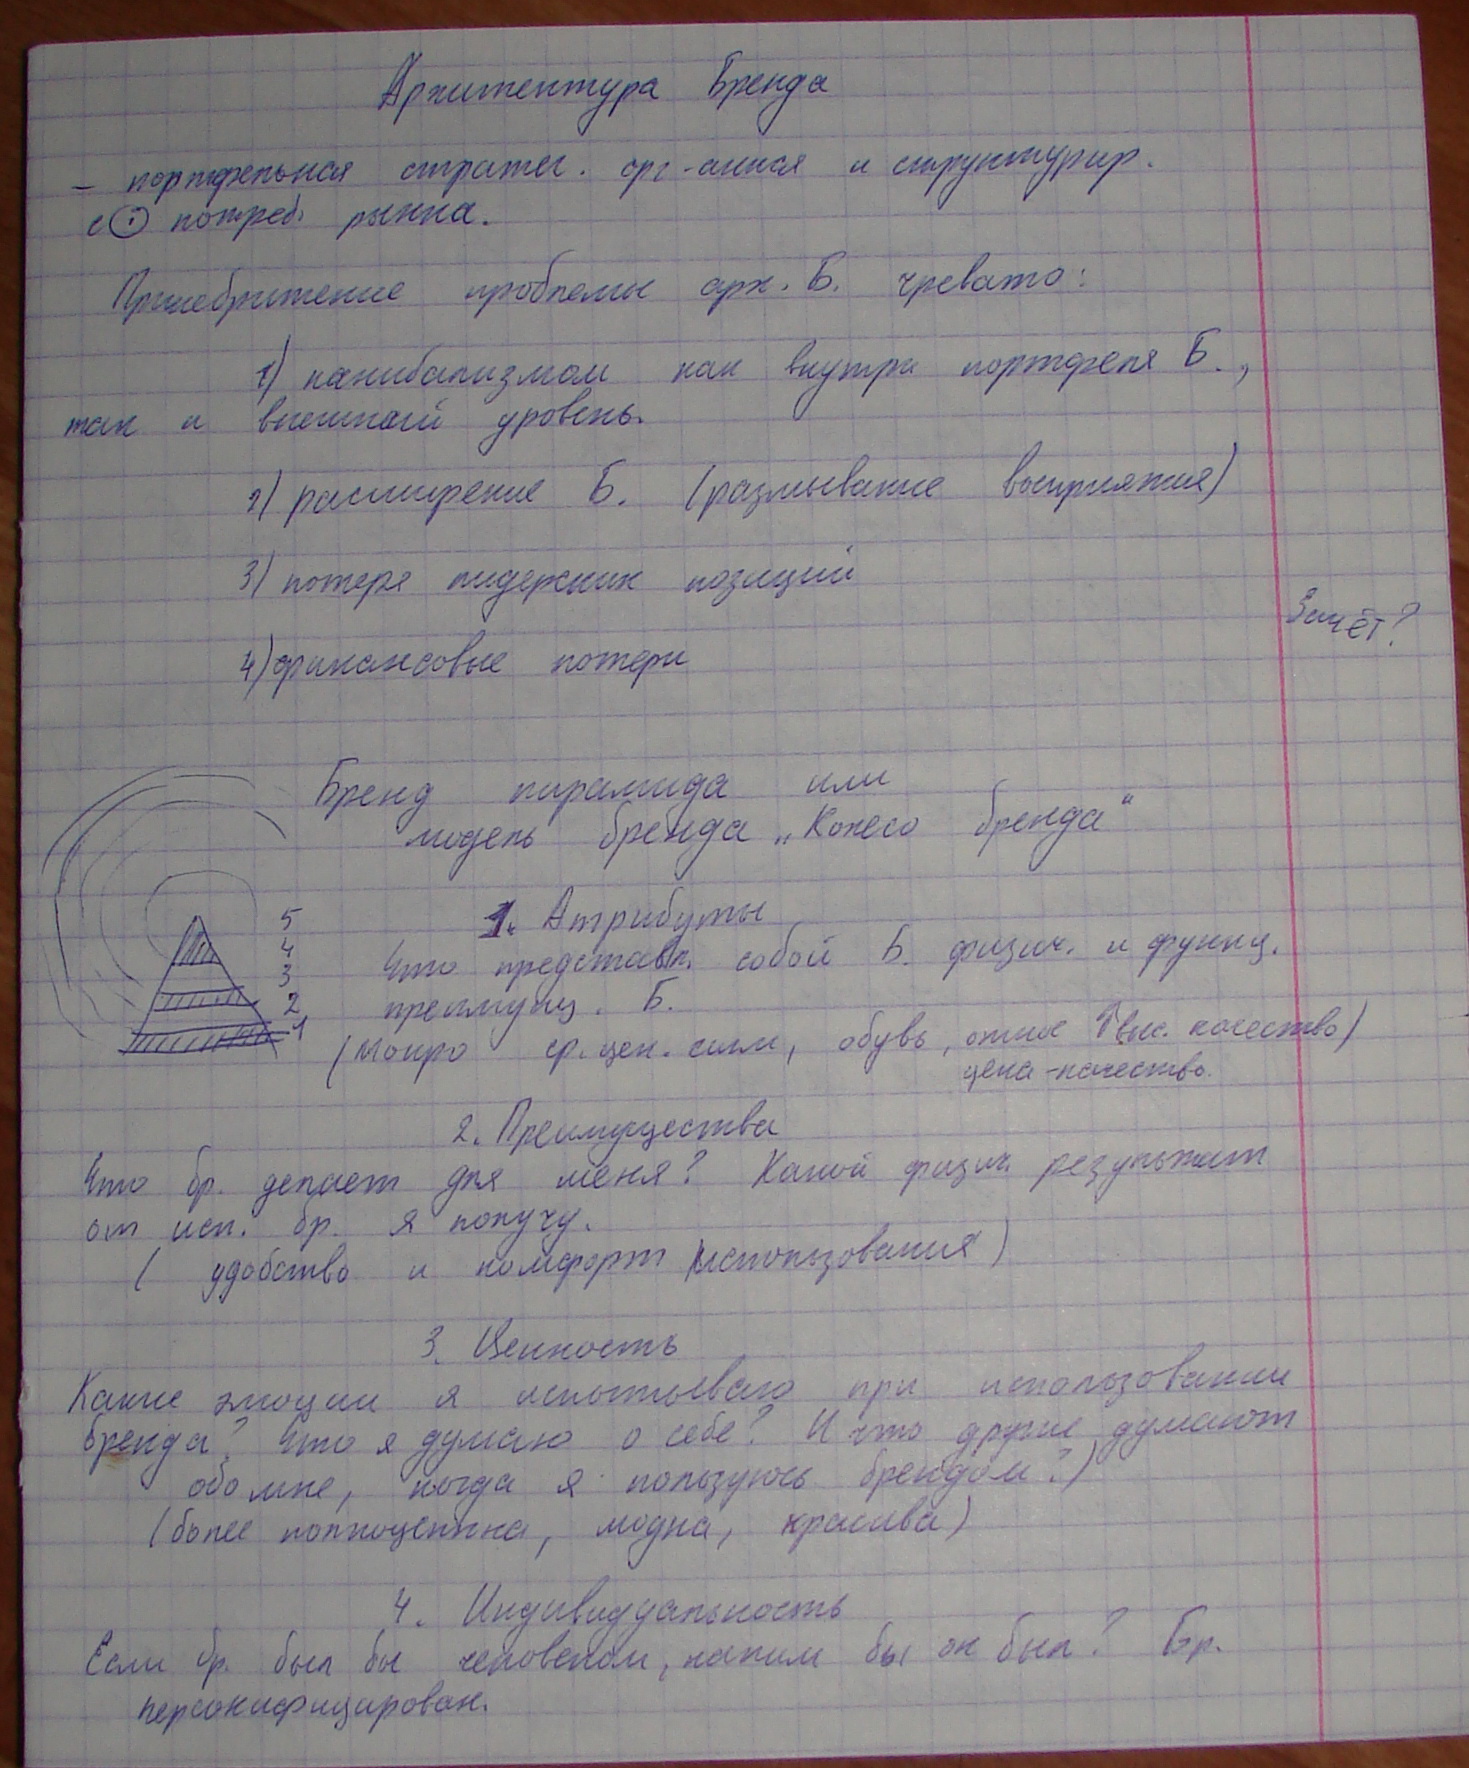 Архитектура Бренда
– портфельная стратег. орг-ания и структурир.
с потреб. рынка.
Принебрижение проблемы арх. Б. чревато:
1) канибализмом как внутри портфеля Б.,
так и внешний уровень.
2) расширение Б. (размывание восприятия)
3) потеря лидерских позиций
Зачёт?
4) финансовые потери
Бренд пирамида или
модель бренда „Колесо бренда"
5
4
3
2
1
1. Атрибуты
Что представл. собой Б. физич. и функц.
преимущ. Б.
(Монро ср. цен. обувь, выс. качество)
цена-качество.
2. Преимущества
Что бр. делает для меня? Какой физич. результат
от исп. бр. я получу.
(удобство и комфорт использования)
3. Ценность
Какие эмоции я испытываю при использовании
бренда? Что я думаю о себе? И что другие думают
обо мне, когда я пользуюсь брендом?)
(более полноценна, модна, красива)
4. Индивидуальность
Если бр. был бы человеком, каким бы он был? Бр.
персонифицирован.